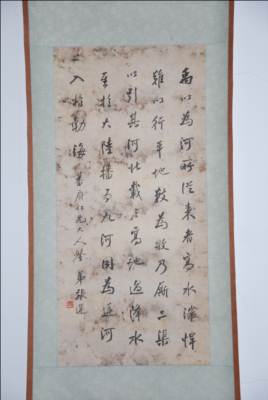 禹以為河所從來者高水湍悍
難以行平地數為敗乃廝二渠
以引其河北載之高地過降水
至於大陸播為九河同為逆河
入於勃海 仁兄大人 弟張